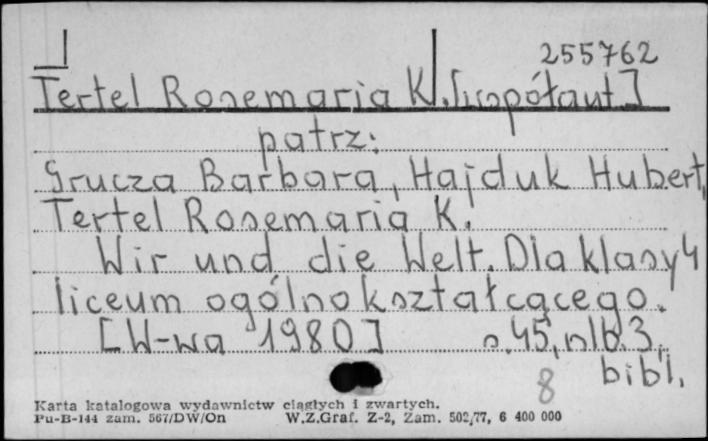 255762
Tertel Rosemaria K. [współaut]
patrz:
Grucza Barbara, Hajduk Hubert,
Tertel Rosemaria K.
Wir und die Welt. Dla klasy 4
liceum ogólnokształcącego.
[W-wa 1980] s. 45, nlb. 3.
bibl.
8
Karta katalogowa wydawnictw ciągłych i zwartych.
Pu-B-144 zam. 567/DW/On W.Z.Graf. Z-2, Zam. 502/77, 6 400 000